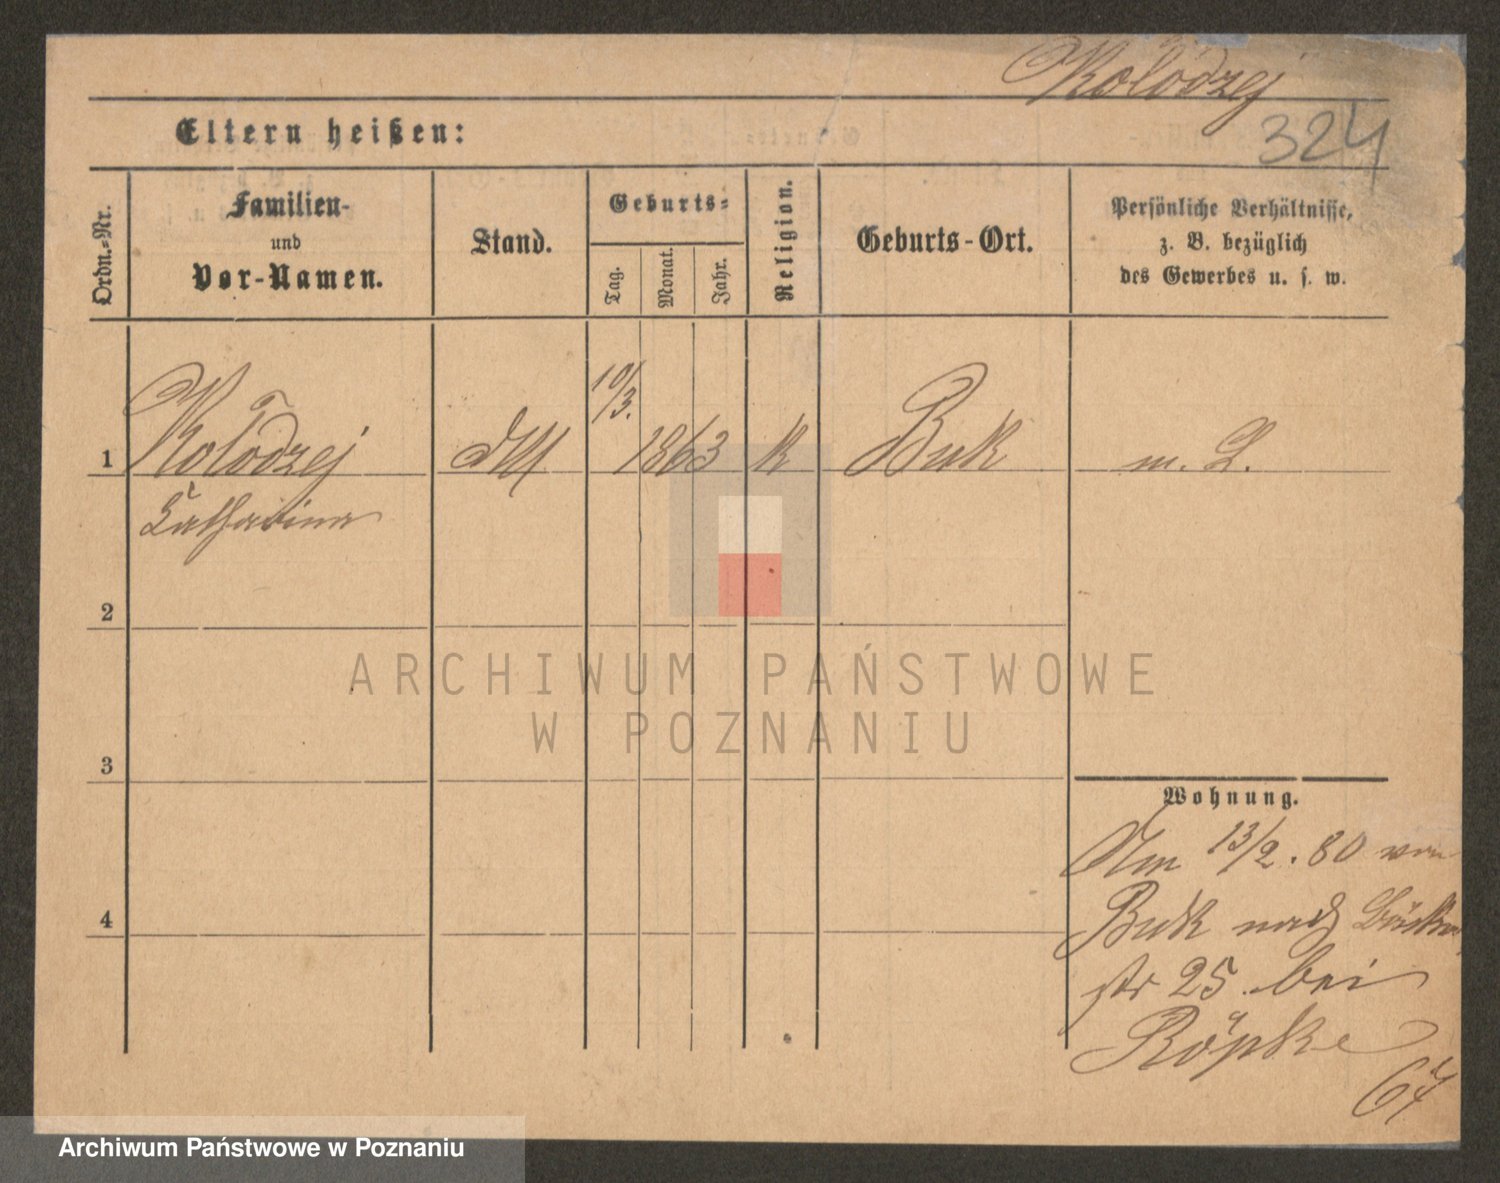 Kołodzej
324
Eltern heißen:
Ordn.-Nr.
Familien-
und
Vor-Namen.
Stand.
Geburts-
Tag.
Monat.
Jahr.
Religion.
Geburts-Ort.
Persönliche Verhältnisse,
z. B. bezüglich
des Gewerbes u. s. w.
1 Kołodzej 10/3. 1863 k Buk m. L.
Catharina
2
ARCHIWUM PAŃSTWOWE
W POZNANIU
3
Wohnung.
Am 13/2. 80 von
4
Buk nach
str 25 bei
Röpke
Archiwum Państwowe w Poznaniu